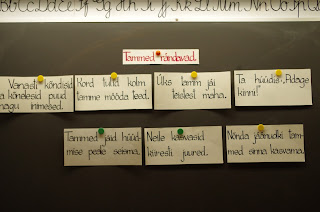 Tammed rändavad.
Vanasti kõndisid
ja kõnelesid puud
nagu inimesed.
Kord tulid kolm
tamme mööda teed.
Üks tamm jäi
teistest maha.
Ta hüüdis: „Pidage
kinni!"
Tammed jäid hüüd-
mise peale seisma.
Neile kasvasid
kiiresti juured.
Nõnda jäänudki tam-
med sinna kasvama.